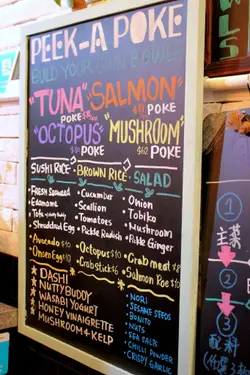 PEEK-A POKE
BUILD YOUR OWN BOWL
"TUNA" SALMON
POKE POKE
"OCTOPUS" "MUSHROOM"
POKE $62 POKE
SUSHI RICE · BROWN RICE · SALAD
· FRESH Seaweed · Cucumber · Onion
· Edamame · Scallion · Tobiko
· Tofu · Tomatoes · Mushroom
· Shredded Egg · Pickle Radish · Pickle Ginger
· Avocado $10 · Octopus $10 · Crab meat $8
· Onsen Egg $10 · Crab stick $6 · Salmon Roe $10
★ DASHI
★ NUTTY BUDDY
★ WASABI YOGURT
★ HONEY VINAIGRETTE
★ MUSHROOM + KELP
· NORI
· SESAME SEEDS
· BONITO
· NUTS
· SEA SALTS
· CHILLI POWDER
· CRISPY GARLIC
LS
1
主菜
2
3
配料